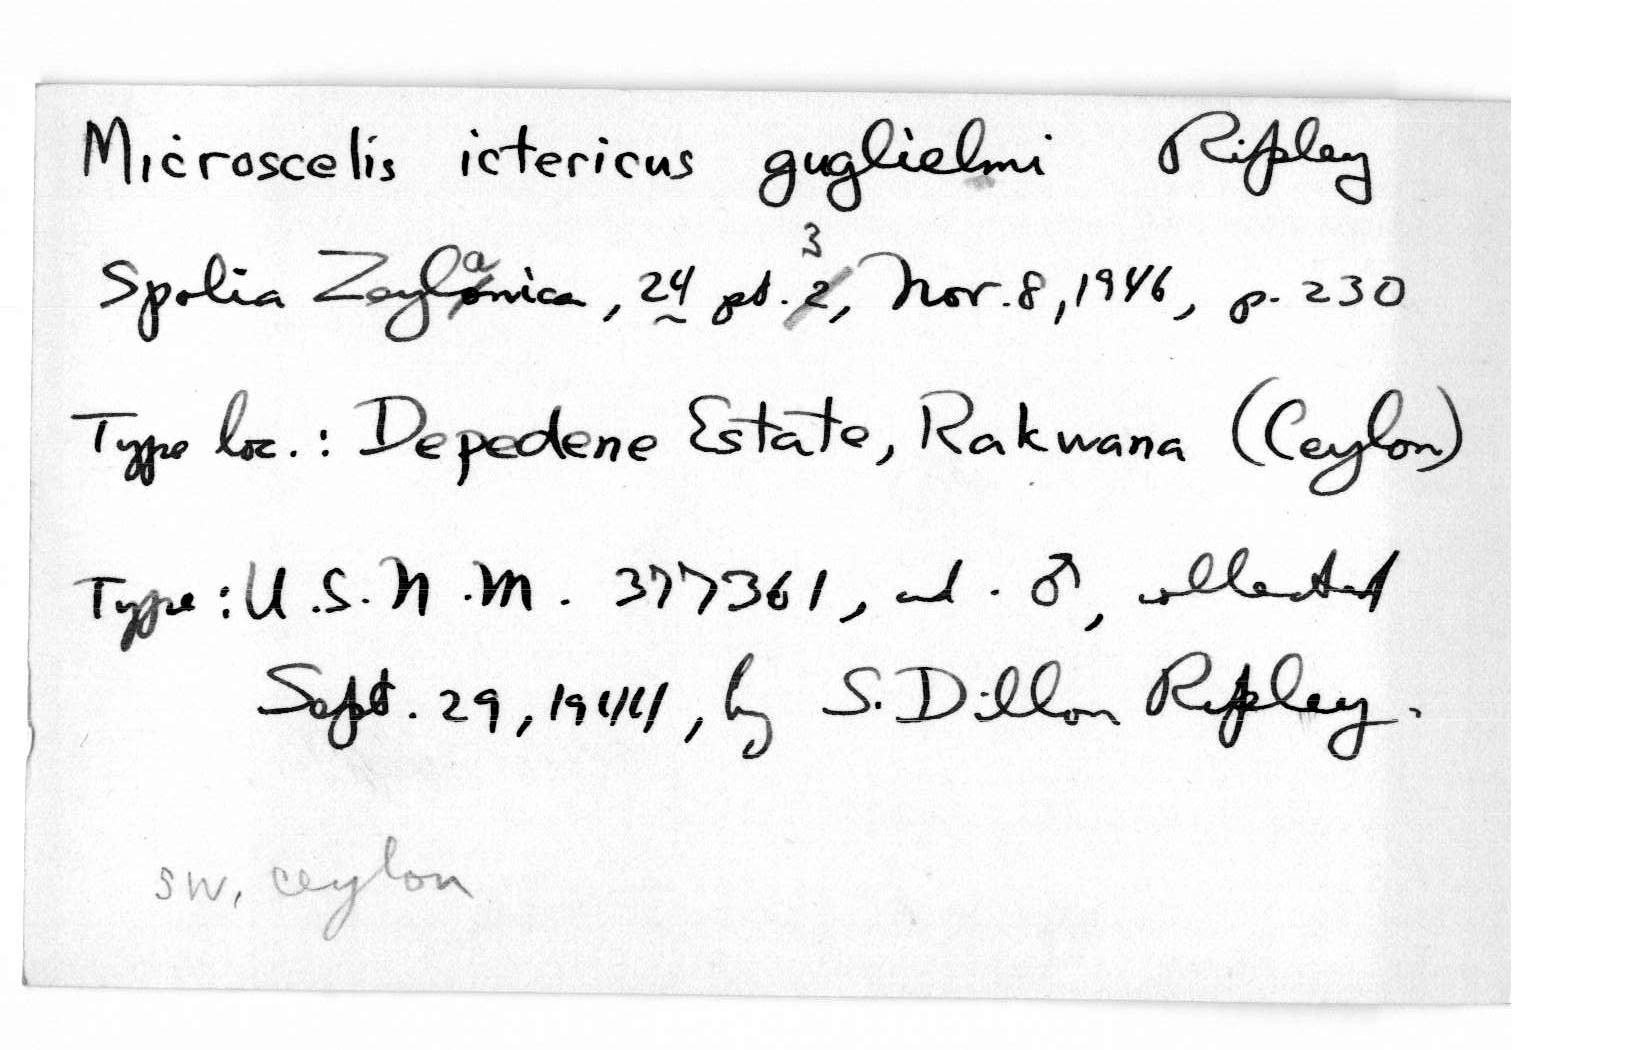 Microscelis ictericus guglielmi Ripley
Spolia Zeylanica, 24 pt. 3, Nov. 8, 1946, p. 230
Type loc.: Depedene Estate, Rakwana (Ceylon)
Type: U.S.N.M. 377361, ad. ♂, collected
Sept. 29, 1944, by S. Dillon Ripley.
SW. Ceylon